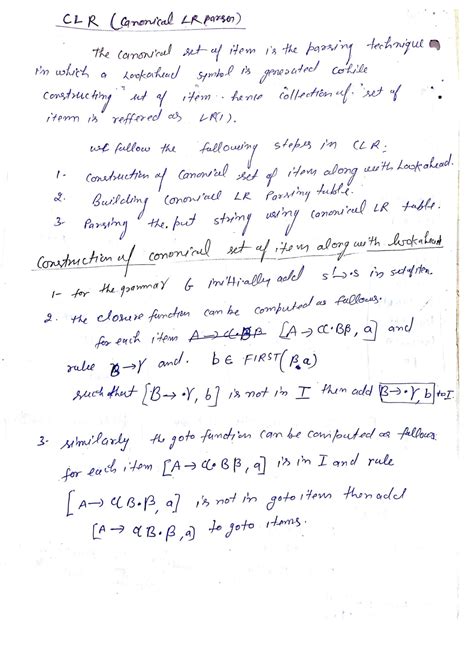 CLR (Canonical LR parser)
The canonical set of item is the parsing technique
in which a lookahead symbol is generated while
constructing set of item. hence collection of set of
item is reffered as LR(1).
we follow the following steps in CLR:
1- construction of canonical set of item along with lookahead.
2. Building canonical LR Parsing table.
3- Parsing the put string using canonical LR table.
Construction of canonical set of item along with lookahead
1- for the grammar G initially add s'→.s in set of item.
2. the closure function can be computed as follows.
for each item [A→α•Bβ, a] and
rule B→γ and. b∈ FIRST(β.a)
such that [B→•γ, b] is not in I then add [B→•γ, b] to I
3- similarly the goto function can be computed as follows
for each item [A→α•Bβ, a] is in I and rule
[A→αB•β, a] is not in goto item then add
[A→αB•β, a] to goto items.